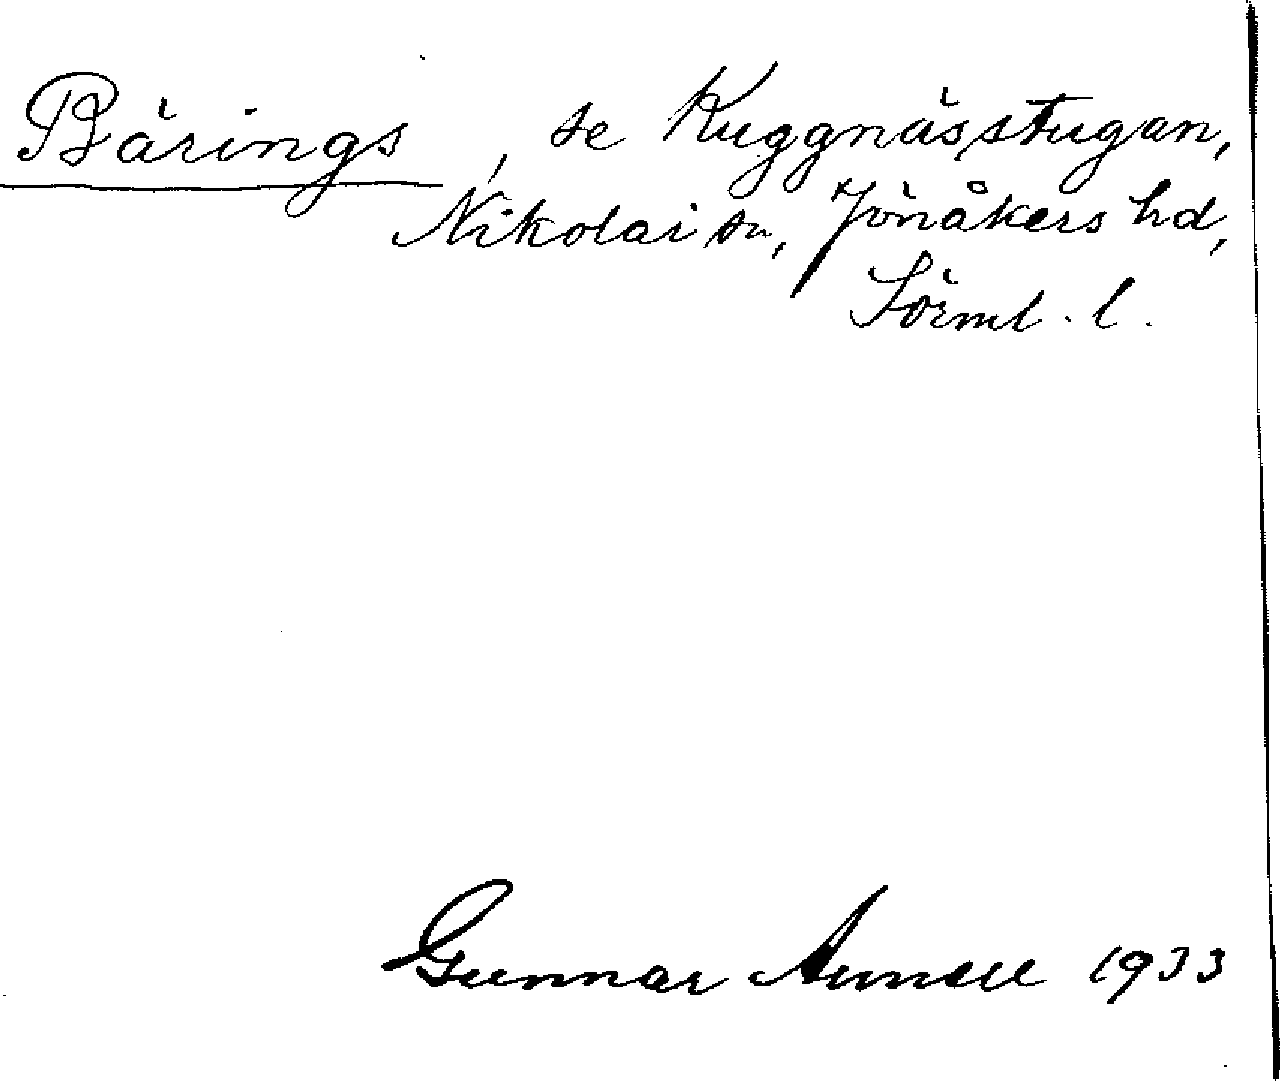 Bärings, se Kuggnässtugan,
Nikolai sn, Jönåkers hd,
Sörml. l.
Gunnar Arnell 1933